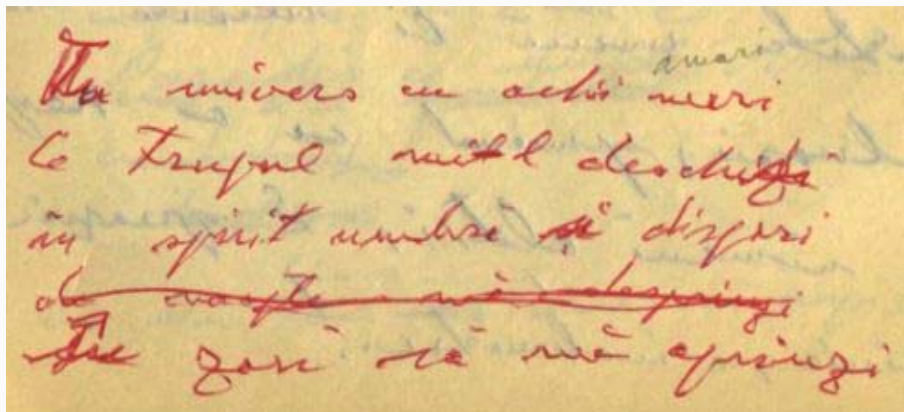 amari
Tu univers cu ochii meri
Ce trupul mi-l deschizi
în spirit umbre și dispari
de noapte mă desprinzi
În zori să mă aprinzi